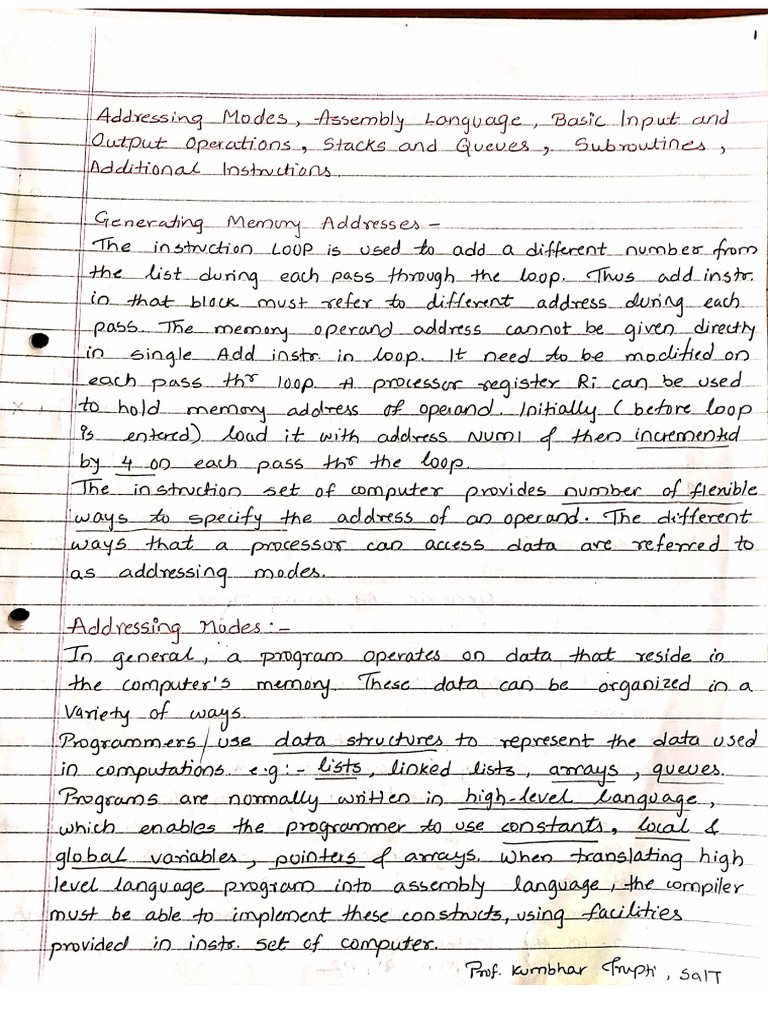 1
Addressing Modes, Assembly Language, Basic Input and
Output Operations, Stacks and Queues, Subroutines,
Additional Instructions.
Generating Memory Addresses -
The instruction LOOP is used to add a different number from
the list during each pass through the loop. Thus add instr.
in that block must refer to different address during each
pass. The memory operand address cannot be given directly
in single Add instr. in loop. It need to be modified on
each pass thr loop. A processor register Ri can be used
to hold memory address of operand. Initially (before loop
is entered) load it with address NUM1 & then incremented
by 4 on each pass thr the loop.
The instruction set of computer provides number of flexible
ways to specify the address of an operand. The different
ways that a processor can access data are referred to
as addressing modes.
Addressing Modes:-
In general, a program operates on data that reside in
the computer's memory. These data can be organized in a
variety of ways.
Programmers use data structures to represent the data used
in computations. e.g:- lists, linked lists, arrays, queues.
Programs are normally written in high-level language,
which enables the programmer to use constants, local &
global variables, pointers & arrays. When translating high
level language program into assembly language, the compiler
must be able to implement these constructs, using facilities
provided in instr. set of computer.
Prof. Kumbhar Trupti, SaIT